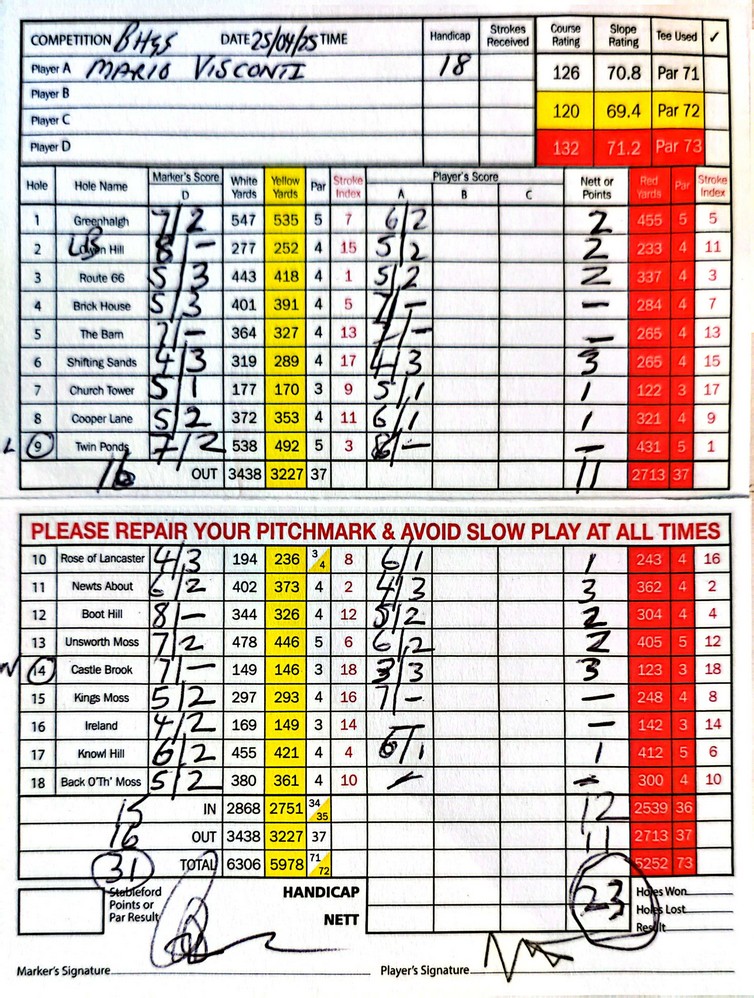 COMPETITION BHGS DATE 25/04/25 TIME Handicap Strokes Received Course Rating Slope Rating Tee Used ✓
Player A MARIO VISCONTI 18 126 70.8 Par 71
Player B
Player C 120 69.4 Par 72
Player D 132 71.2 Par 73
Hole Hole Name Marker's Score D White Yards Yellow Yards Par Stroke Index Player's Score A B C Nett or Points Red Yards Par Stroke Index
1 Greenhalgh 7/2 547 535 5 7 6/2 2 455 5 5
2 Hill 8/- 277 252 4 15 5/2 2 233 4 11
3 Route 66 5/3 443 418 4 1 5/2 2 337 4 3
4 Brick House 5/3 401 391 4 5 7/- - 284 4 7
5 The Barn 7/- 364 327 4 13 7/- - 265 4 13
6 Shifting Sands 4/3 319 289 4 17 4/3 3 265 4 15
7 Church Tower 5/1 177 170 3 9 5/1 1 122 3 17
8 Cooper Lane 5/2 372 353 4 11 6/1 1 321 4 9
L 9 Twin Ponds 7/2 538 492 5 3 8/- - 431 5 1
16 OUT 3438 3227 37 11 2713 37
PLEASE REPAIR YOUR PITCHMARK & AVOID SLOW PLAY AT ALL TIMES
10 Rose of Lancaster 4/3 194 236 3/4 8 6/1 1 243 4 16
11 Newts About 6/2 402 373 4 2 4/3 3 362 4 2
12 Boot Hill 8/- 344 326 4 12 5/2 2 304 4 4
13 Unsworth Moss 7/2 478 446 5 6 6/2 2 405 5 12
N 14 Castle Brook 7/- 149 146 3 18 3/3 3 123 3 18
15 Kings Moss 5/2 297 293 4 16 7/- - 248 4 8
16 Ireland 4/2 169 149 3 14 - - 142 3 14
17 Knowl Hill 6/2 455 421 4 4 6/1 1 412 5 6
18 Back O'Th' Moss 5/2 380 361 4 10 - - 300 4 10
15 IN 2868 2751 34/35 12 2539 36
16 OUT 3438 3227 37 11 2713 37
31 TOTAL 6306 5978 71/72 5252 73
Stableford Points or Par Result HANDICAP NETT 23 Holes Won
Holes Lost
Result
Marker's Signature Player's Signature